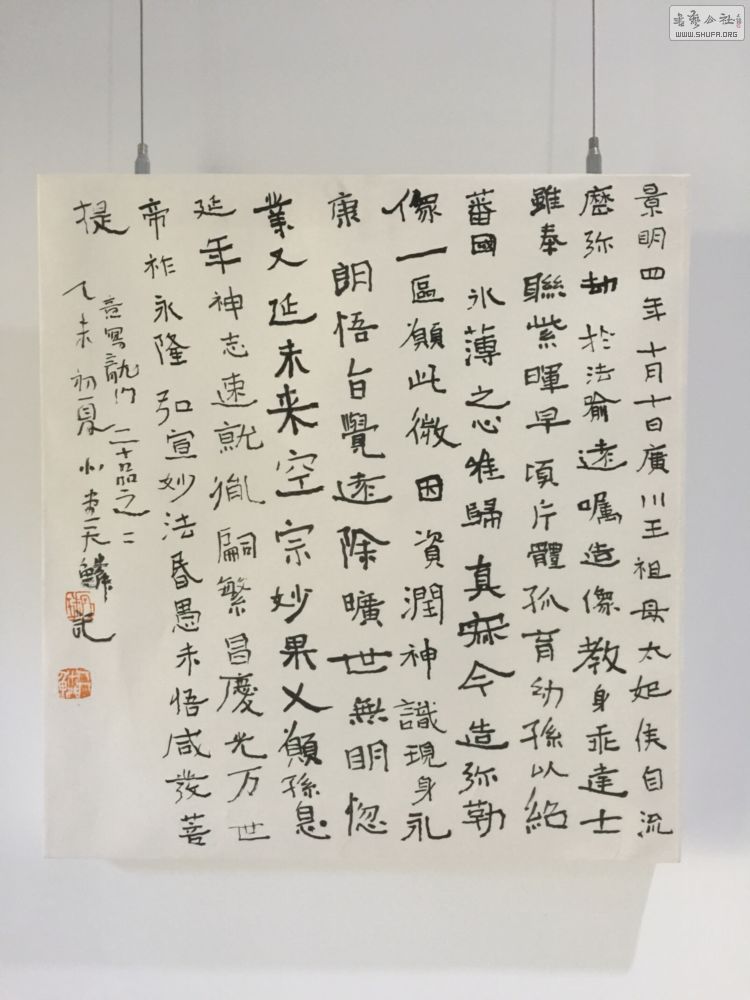 景明四年十月十日廣川王祖母太妃侯自流
歷弥劫於法喻遠嘱造像教身乖達士
雖奉聯紫暉早頃片體孤育幼孫以紹
蕃國氷薄之心唯歸真寂今造弥勒
像一區願此微因資潤神識現身永
康朗悟旨覺遠除曠世無明惚
業又延未来空宗妙果又願孫息
延年神志速就胤嗣繁昌慶光万世
帝祚永隆弘宣妙法昏愚未悟咸發菩
提
意寫龍门二十品之二
乙未初夏小李天 記
書藝公社
WWW.SHUFA.ORG